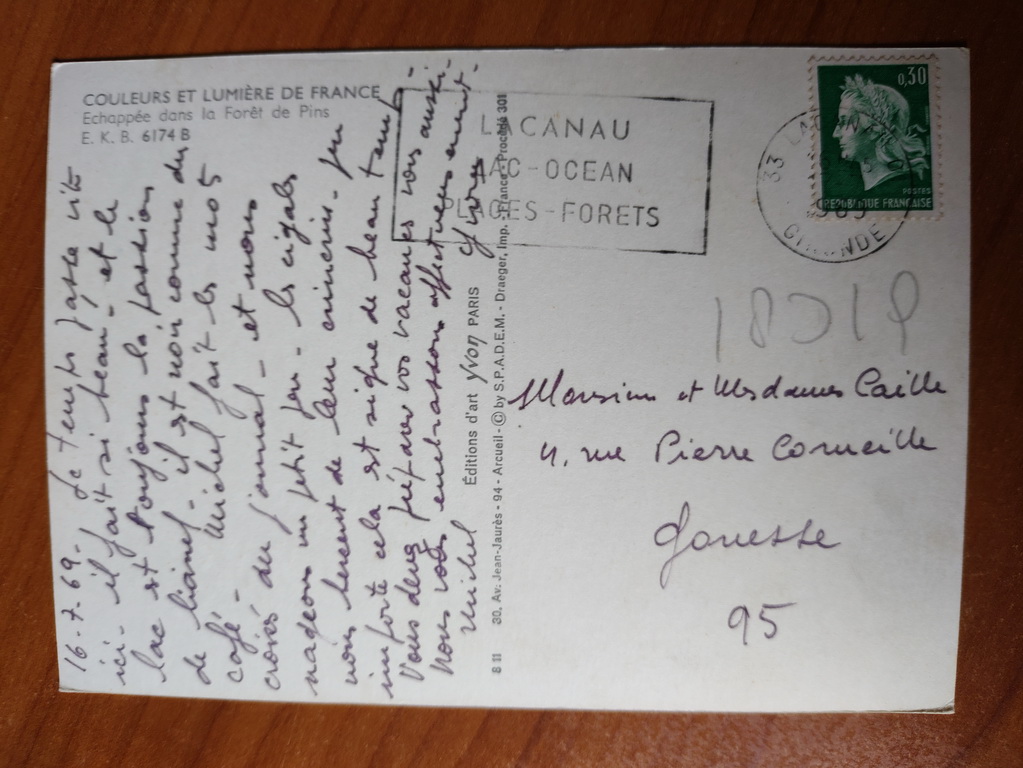 COULEURS ET LUMIÈRE DE FRANCE
Echappée dans la Forêt de Pins
E. K. B. 6174 B
16-7-69- Le temps passe vite
ici- il fait si beau! et le
lac est toujours la passion
de Lionel- il est noir comme du
café- Michel fait les mots
croisés du journal- et nous
nageons un petit peu- les cigales
nous bercent de leur cricris- peu
importe cela est signe de beau temps-
Vous deux préparez vos vacances vous aussi-
Nous vous embrassons affectueusement-
Michel Yvonne
Éditions d'art yvon PARIS
8 11 30, Av. Jean-Jaurès - 94 - Arcueil - © by S.P.A.D.E.M. - Draeger, Imp. - France - Procédé 301
LACANAU
LAC-OCEAN
PLAGES-FORETS
33
GIRONDE
0,30
POSTES
REPUBLIQUE FRANCAISE
Monsieur et Mesdames Caille
4, rue Pierre Corneille
Gonesse
95